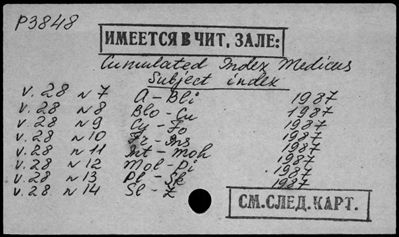 P3848
ИМЕЕТСЯ В ЧИТ. ЗАЛЕ:
Cumulated Index Medicus
Subject index
v. 28 n 7 A - Bli 1987
v. 28 n 8 Blo - Cu 1987
v. 28 n 9 Cy - Fo 1987
v. 28 n 10 Fr - Ins 1987
v. 28 n 11 Int - Moh 1987
v. 28 n 12 Mol - Pi 1987
v. 28 n 13 Pl - Sk 1987
v. 28 n 14 Sl - Z
СМ. СЛЕД. КАРТ.